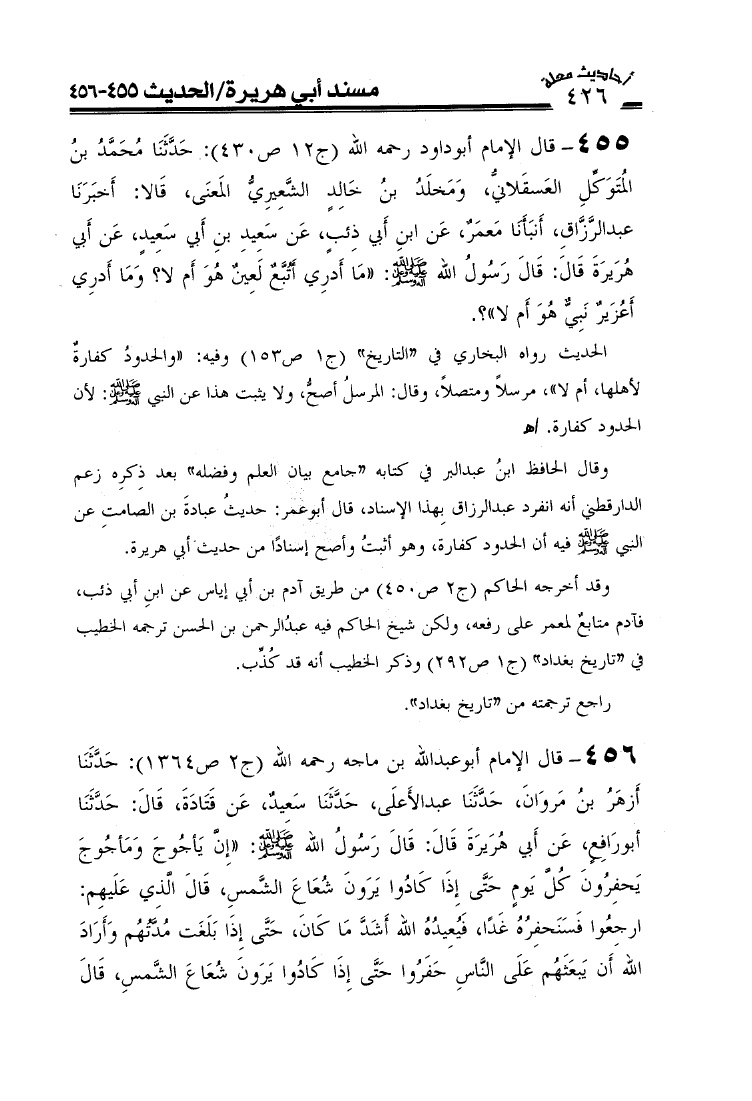 أحاديث معلة
مسند أبي هريرة/الحديث ٤٥٥-٤٥٦
٤٢٦
٤٥٥- قال الإمام أبوداود رحمه الله (ج١٢ ص٤٣٠): حَدَّثَنَا مُحَمَّدُ بنُ
المُتَوَكِّلِ العَسقَلانيُّ، وَمَخلَدُ بنُ خَالِدٍ الشَّعِيرِيُّ المَعنَى، قَالا: أَخبَرَنَا
عبدالرَّزَّاقِ، أَنبَأَنَا مَعمَرٌ، عَن ابنِ أَبي ذئبٍ، عَن سَعِيدِ بنِ أَبي سَعِيدٍ، عَن أَبي
هُرَيرَةَ قَالَ: قَالَ رَسُولُ الله ﷺ: «مَا أَدرِي أَتُبَّعٌ لَعِينٌ هُوَ أَم لا؟ وَمَا أَدرِي
أَعُزَيرٌ نَبيٌّ هُوَ أَم لا»؟.
الحديث رواه البخاري في "التاريخ" (ج١ ص١٥٣) وفيه: «والحدودُ كفارةٌ
لأهلها، أم لا»، مرسلاً ومتصلاً، وقال: المرسلُ أصحُّ، ولا يثبت هذا عن النبي ﷺ: لأن
الحدود كفارة. اهـ
وقال الحافظ ابنُ عبدالبر في كتابه "جامع بيان العلم وفضله" بعد ذِكرِه زعم
الدارقطني أنه انفرد عبدالرزاق بِهذا الإسناد، قال أبوعُمر: حديثُ عبادةَ بن الصامت عن
النبي ﷺ فيه أن الحدود كفارة، وهو أثبتُ وأصح إسنادًا من حديث أبي هريرة.
وقد أخرجه الحاكم (ج٢ ص٤٥٠) من طريق آدم بن أبي إياس عن ابنِ أبي ذئب،
فآدم متابعٌ لمعمر على رفعه، ولكن شيخ الحاكم فيه عبدُالرحمن بن الحسن ترجمه الخطيب
في "تاريخ بغداد" (ج١ ص٢٩٢) وذكر الخطيب أنه قد كُذِّب.
راجع ترجمته من "تاريخ بغداد".
٤٥٦- قال الإمام أبوعبدالله بن ماجه رحمه الله (ج٢ ص١٣٦٤): حَدَّثَنَا
أَزهَرُ بنُ مَروَانَ، حَدَّثَنَا عبدالأَعلَى، حَدَّثَنَا سَعِيدٌ، عَن قَتَادَةَ، قَالَ: حَدَّثَنَا
أبورَافِعٍ، عَن أَبي هُرَيرَةَ قَالَ: قَالَ رَسُولُ الله ﷺ: «إِنَّ يَأجُوجَ وَمَأجُوجَ
يَحفِرُونَ كُلَّ يَومٍ حَتَّى إِذَا كَادُوا يَرَونَ شُعَاعَ الشَّمسِ، قَالَ الَّذي عَلَيهِم:
ارجِعُوا فَسَنَحفِرُهُ غَدًا، فَيُعِيدُهُ الله أَشَدَّ مَا كَانَ، حَتَّى إِذَا بَلَغَت مُدَّتُهُم وَأَرَادَ
الله أَن يَبعَثَهُم عَلَى النَّاسِ حَفَرُوا حَتَّى إِذَا كَادُوا يَرَونَ شُعَاعَ الشَّمسِ، قَالَ